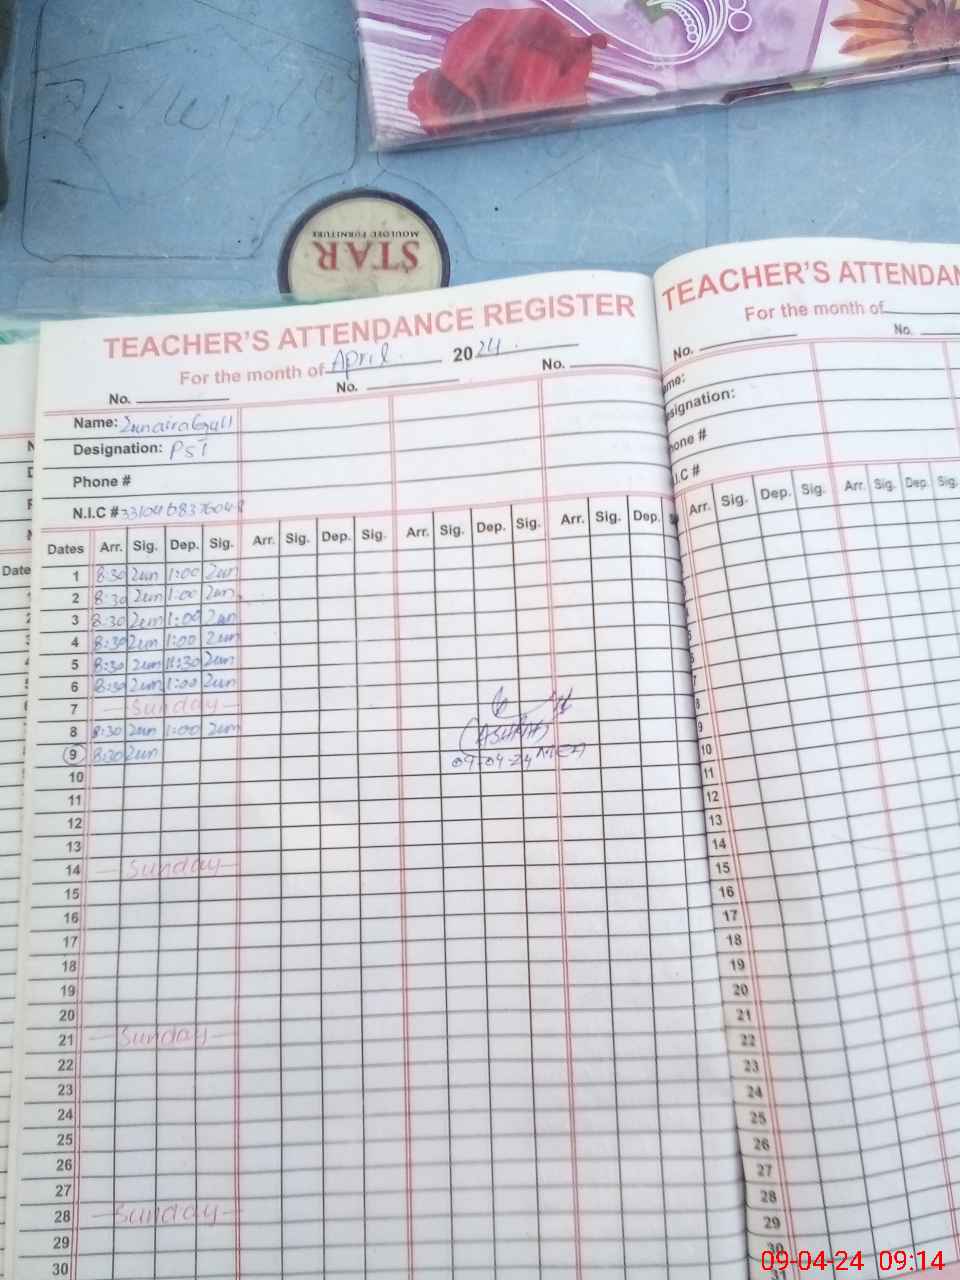 STAR
MOULDED FURNITURE
TEACHER'S ATTENDANCE REGISTER
For the month of April 2024
No. No. No.
Name: Zunaira Gull
Designation: PST
Phone #
N.I.C #
Dates Arr. Sig. Dep. Sig. Arr. Sig. Dep. Sig. Arr. Sig. Dep. Sig. Arr. Sig. Dep.
1 8:30 Zun 1:00 Zun
2 8:30 Zun 1:00 Zun
3 8:30 Zun 1:00 Zun
4 8:30 Zun 1:00 Zun
5 8:30 Zun 11:30 Zun
6 8:30 Zun 1:00 Zun
7 Sunday
8 8:30 Zun 1:00 Zun
9 8:30 Zun
09-04-24
10
11
12
13
14 Sunday
15
16
17
18
19
20
21 Sunday
22
23
24
25
26
27
28 Sunday
29
30
TEACHER'S ATTENDAN
For the month of
No. No.
ame:
esignation:
hone #
I.C #
Arr. Sig. Dep. Sig. Arr. Sig. Dep. Sig.
8
9
10
11
12
13
14
15
16
17
18
19
20
21
22
23
24
25
26
27
28
29
30
31
Date
09-04-24 09:14